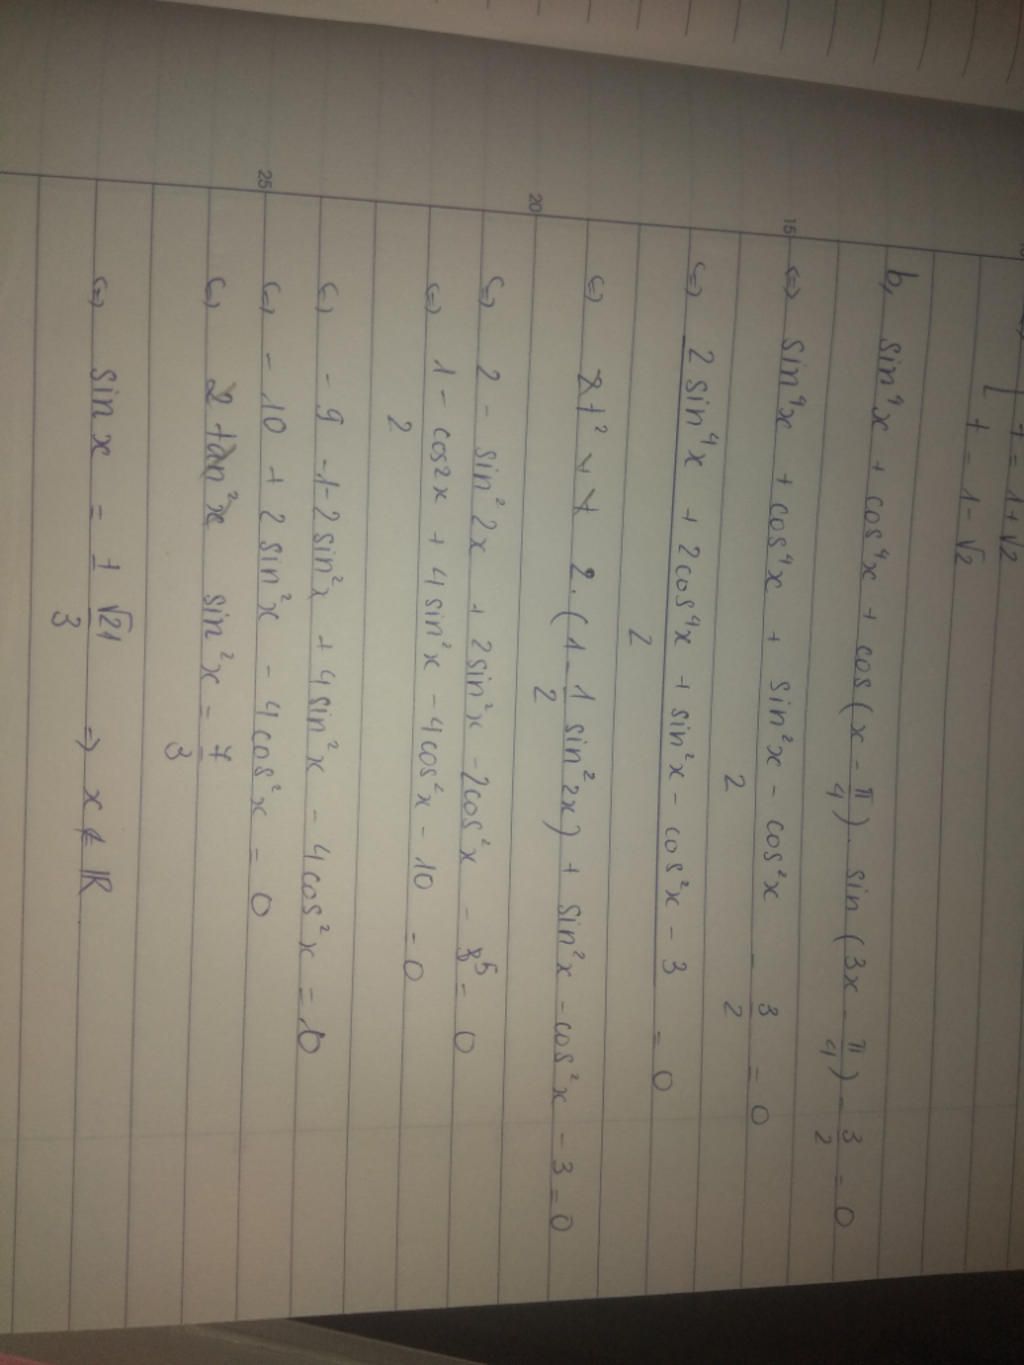 t = 1+√2
t = 1-√2
b, sin⁴x + cos⁴x + cos(x - π/4). sin(3x - π/4) - 3/2 = 0
15
(=) sin⁴x + cos⁴x + (sin²x - cos²x)/2 - 3/2 = 0
(=) (2sin⁴x + 2cos⁴x + sin²x - cos²x - 3)/2 = 0
(=) 2.(1 - 1/2 sin²2x) + sin²x - cos²x - 3 = 0
20
(=) 2 - sin²2x + 2sin²x - 2cos²x - 5 = 0
(=) (1 - cos2x)/2 + 4sin²x - 4cos²x - 10 = 0
(=) - 9 - 1-2sin²x + 4sin²x - 4cos²x = 0
25
(=) - 10 + 2sin²x - 4cos²x = 0
(=) sin²x = 7/3
(=) sin x = ± √21/3 => x ∉ ℝ